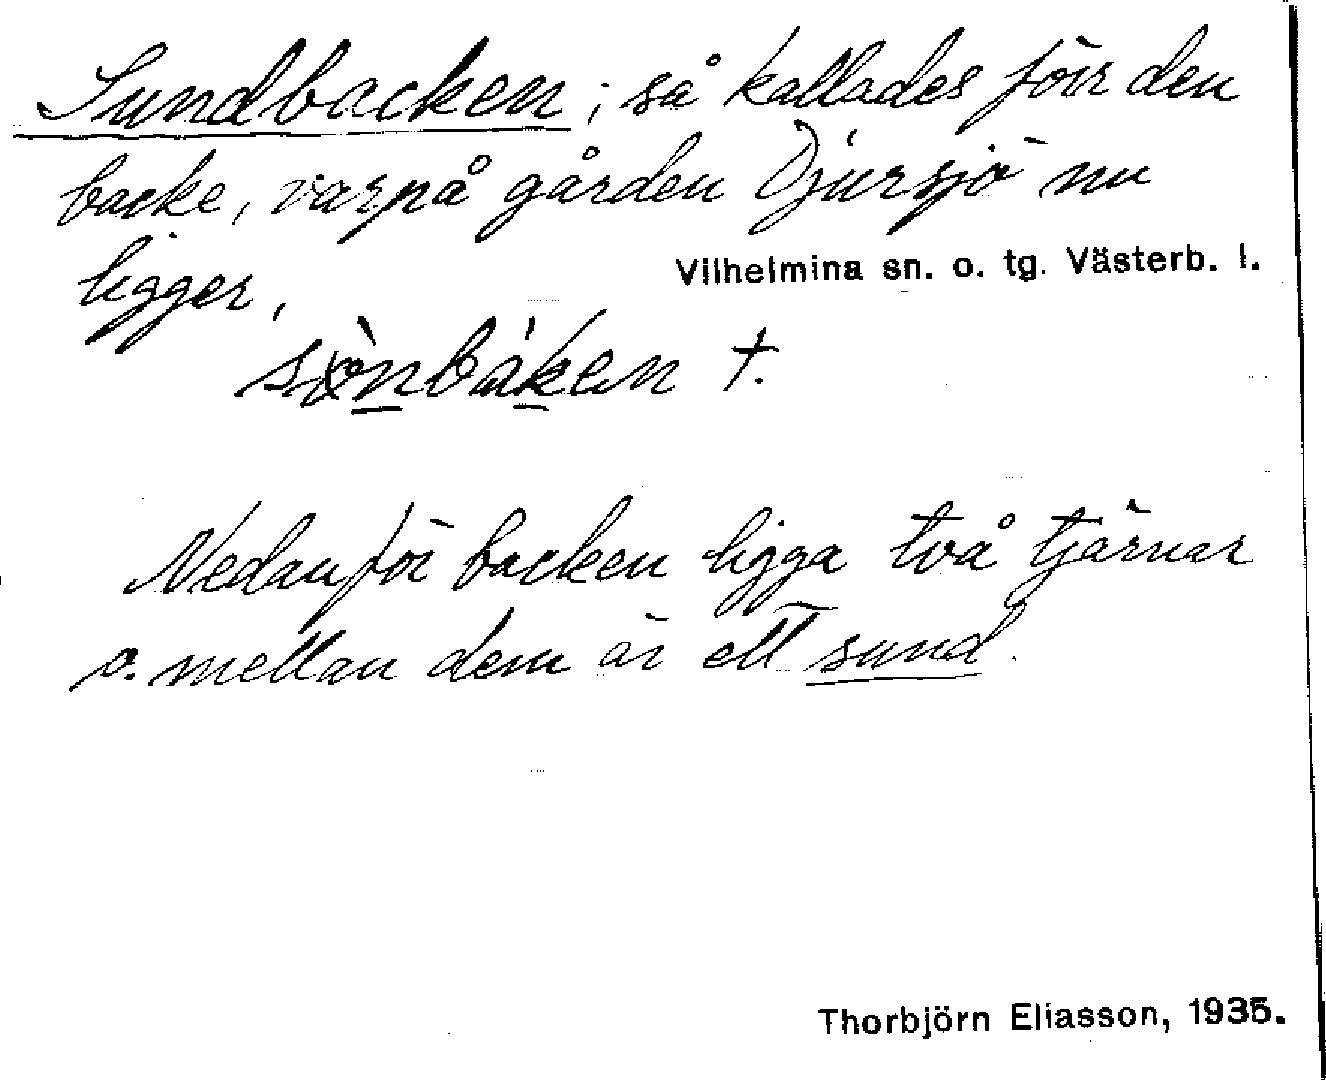 Sundbacken; så kallades förr den
backe, varpå gården Djursjö nu
ligger,
Vilhelmina sn. o. tg. Västerb. l.
Nedanför backen ligga två tjärnar
o. mellan dem är ett sund.
Thorbjörn Eliasson, 1935.